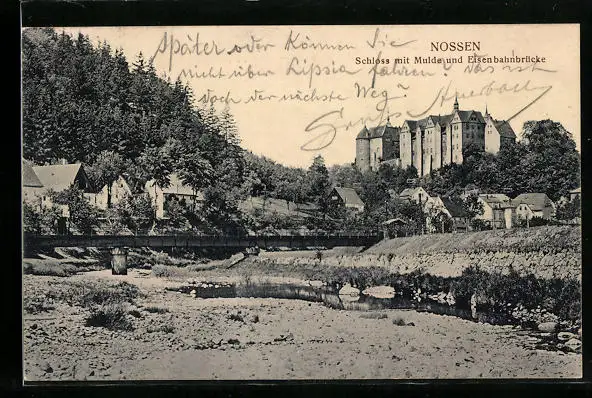 NOSSEN
Schloss mit Mulde und Eisenbahnbrücke
Später oder Können Sie
nicht über Lipsia fahren? Das ist
doch der nächste Weg.